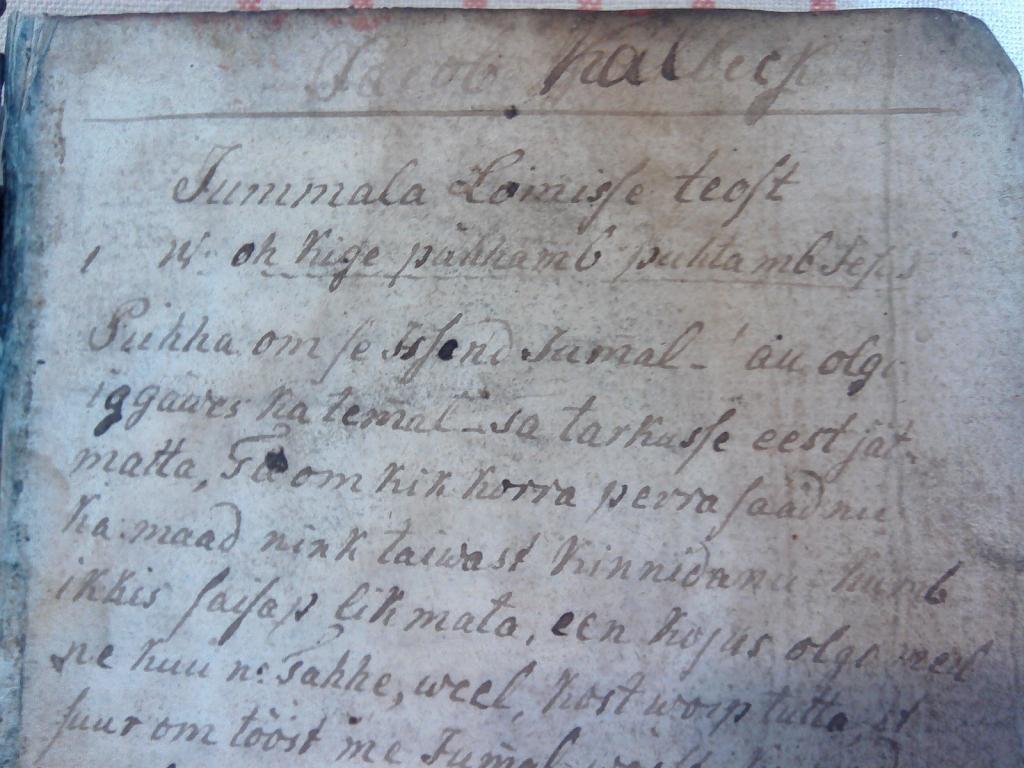 Jacob Kalbeck
Jummala Lomisse teost
1 W. oh kige pähhamb puhtamb Jesus
Puhha om se Issend Jumal - au olgo
iggawes ka temal - sa tarkusse eest jät-
matta, Ta om kik korra perra saadnu
ka maad nink taiwast kinnidanu kumb
ikkis saisap likmata, een kojus olgo
ne kuu n: Tahhe, weel, kost woip tutta, et
suur om tööst me Jummal